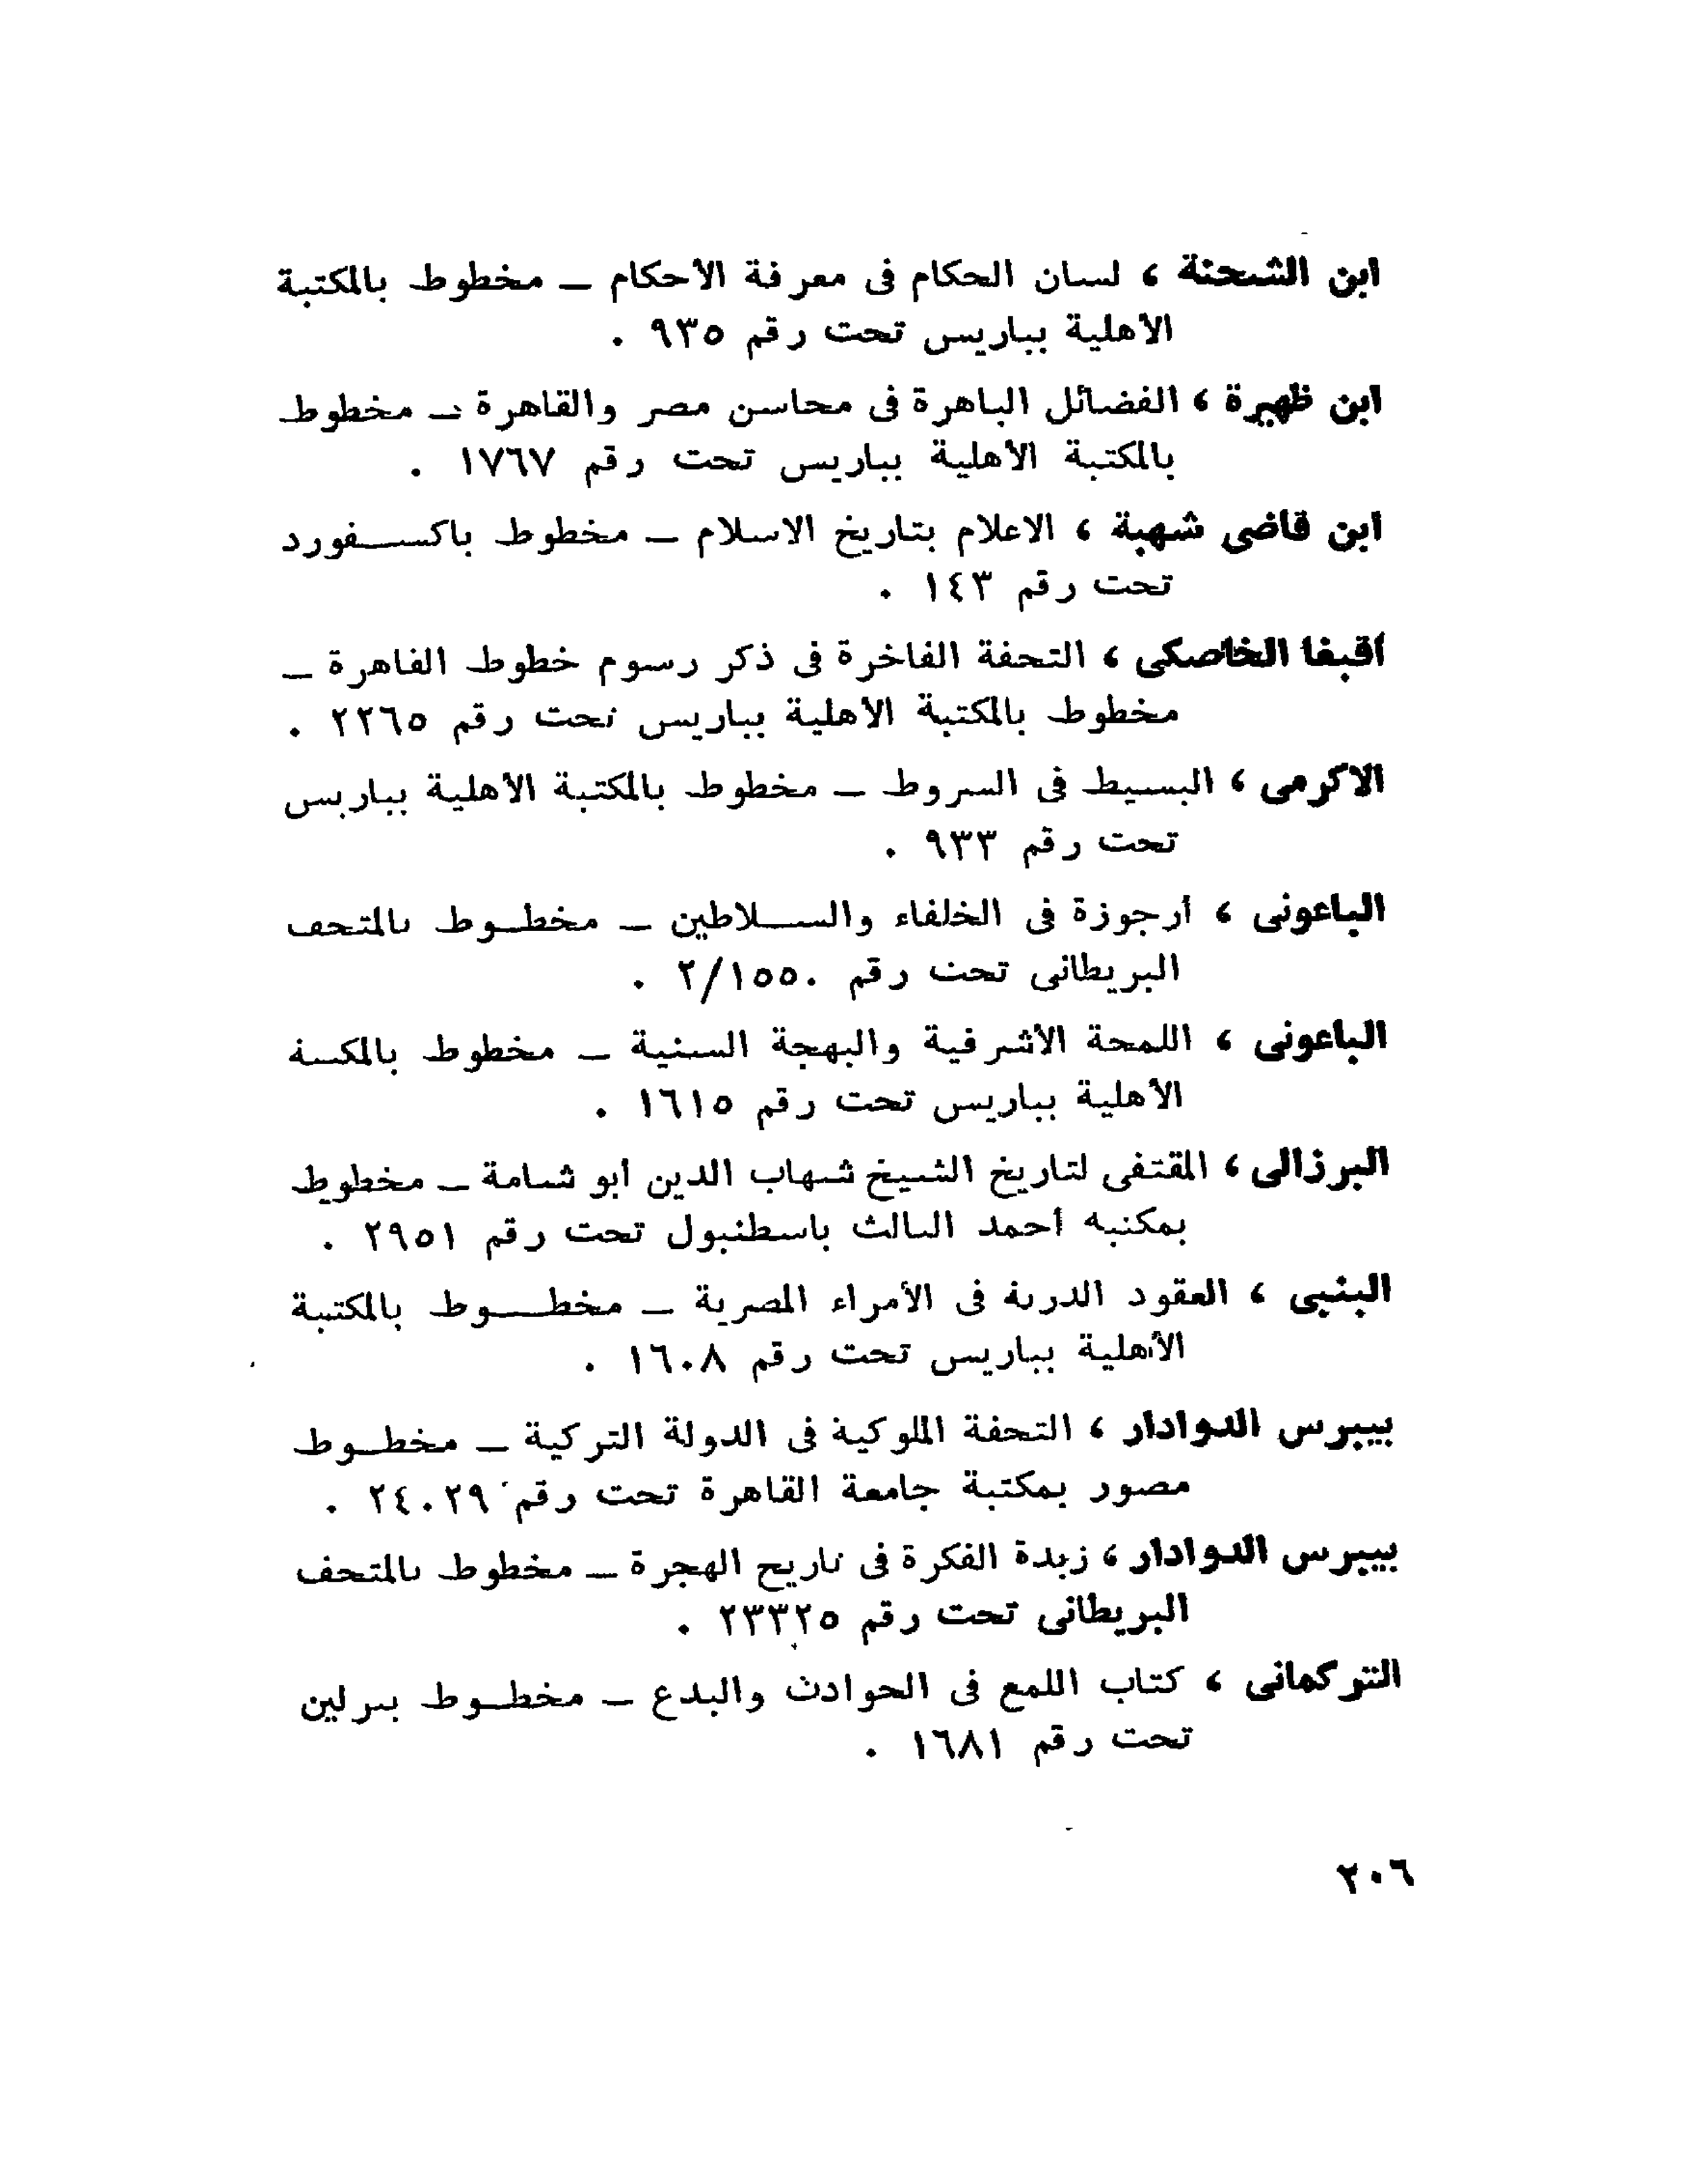 ابن الشحنة ، لسان الحكام فى معرفة الأحكام – مخطوط بالمكتبة
الأهلية بباريس تحت رقم ٩٣٥ .
ابن ظهيرة ، الفضائل الباهرة فى محاسن مصر والقاهرة – مخطوط
بالمكتبة الأهلية بباريس تحت رقم ١٧٦٧ .
ابن قاضى شهبة ، الاعلام بتاريخ الاسلام – مخطوط باكسفورد
تحت رقم ١٤٣ .
أقبغا الخاصكى ، التحفة الفاخرة فى ذكر رسوم خطوط القاهرة –
مخطوط بالمكتبة الأهلية بباريس تحت رقم ٢٢٦٥ .
الاكرمى ، البسيط فى الشروط – مخطوط بالمكتبة الأهلية بباريس
تحت رقم ٩٣٣ .
الباعونى ، أرجوزة فى الخلفاء والسلاطين – مخطوط بالمتحف
البريطانى تحت رقم ٢/١٥٥٠ .
الباعونى ، اللمحة الأشرفية والبهجة السنية – مخطوط بالمكتبة
الأهلية بباريس تحت رقم ١٦١٥ .
البرزالى ، المقتفى لتاريخ الشيخ شهاب الدين أبو شامة – مخطوط
بمكتبة أحمد الثالث باسطنبول تحت رقم ٢٩٥١ .
البنبى ، العقود الدرية فى الأمراء المصرية – مخطوط بالمكتبة
الأهلية بباريس تحت رقم ١٦٠٨ .
بيبرس الدوادار ، التحفة الملوكية فى الدولة التركية – مخطوط
مصور بمكتبة جامعة القاهرة تحت رقم ٢٤٠٢٩ .
بيبرس الدوادار ، زبدة الفكرة فى تاريخ الهجرة – مخطوط بالمتحف
البريطانى تحت رقم ٢٣٣٢٥ .
التركمانى ، كتاب اللمع فى الحوادث والبدع – مخطوط ببرلين
تحت رقم ١٦٨١ .
٢٠٦